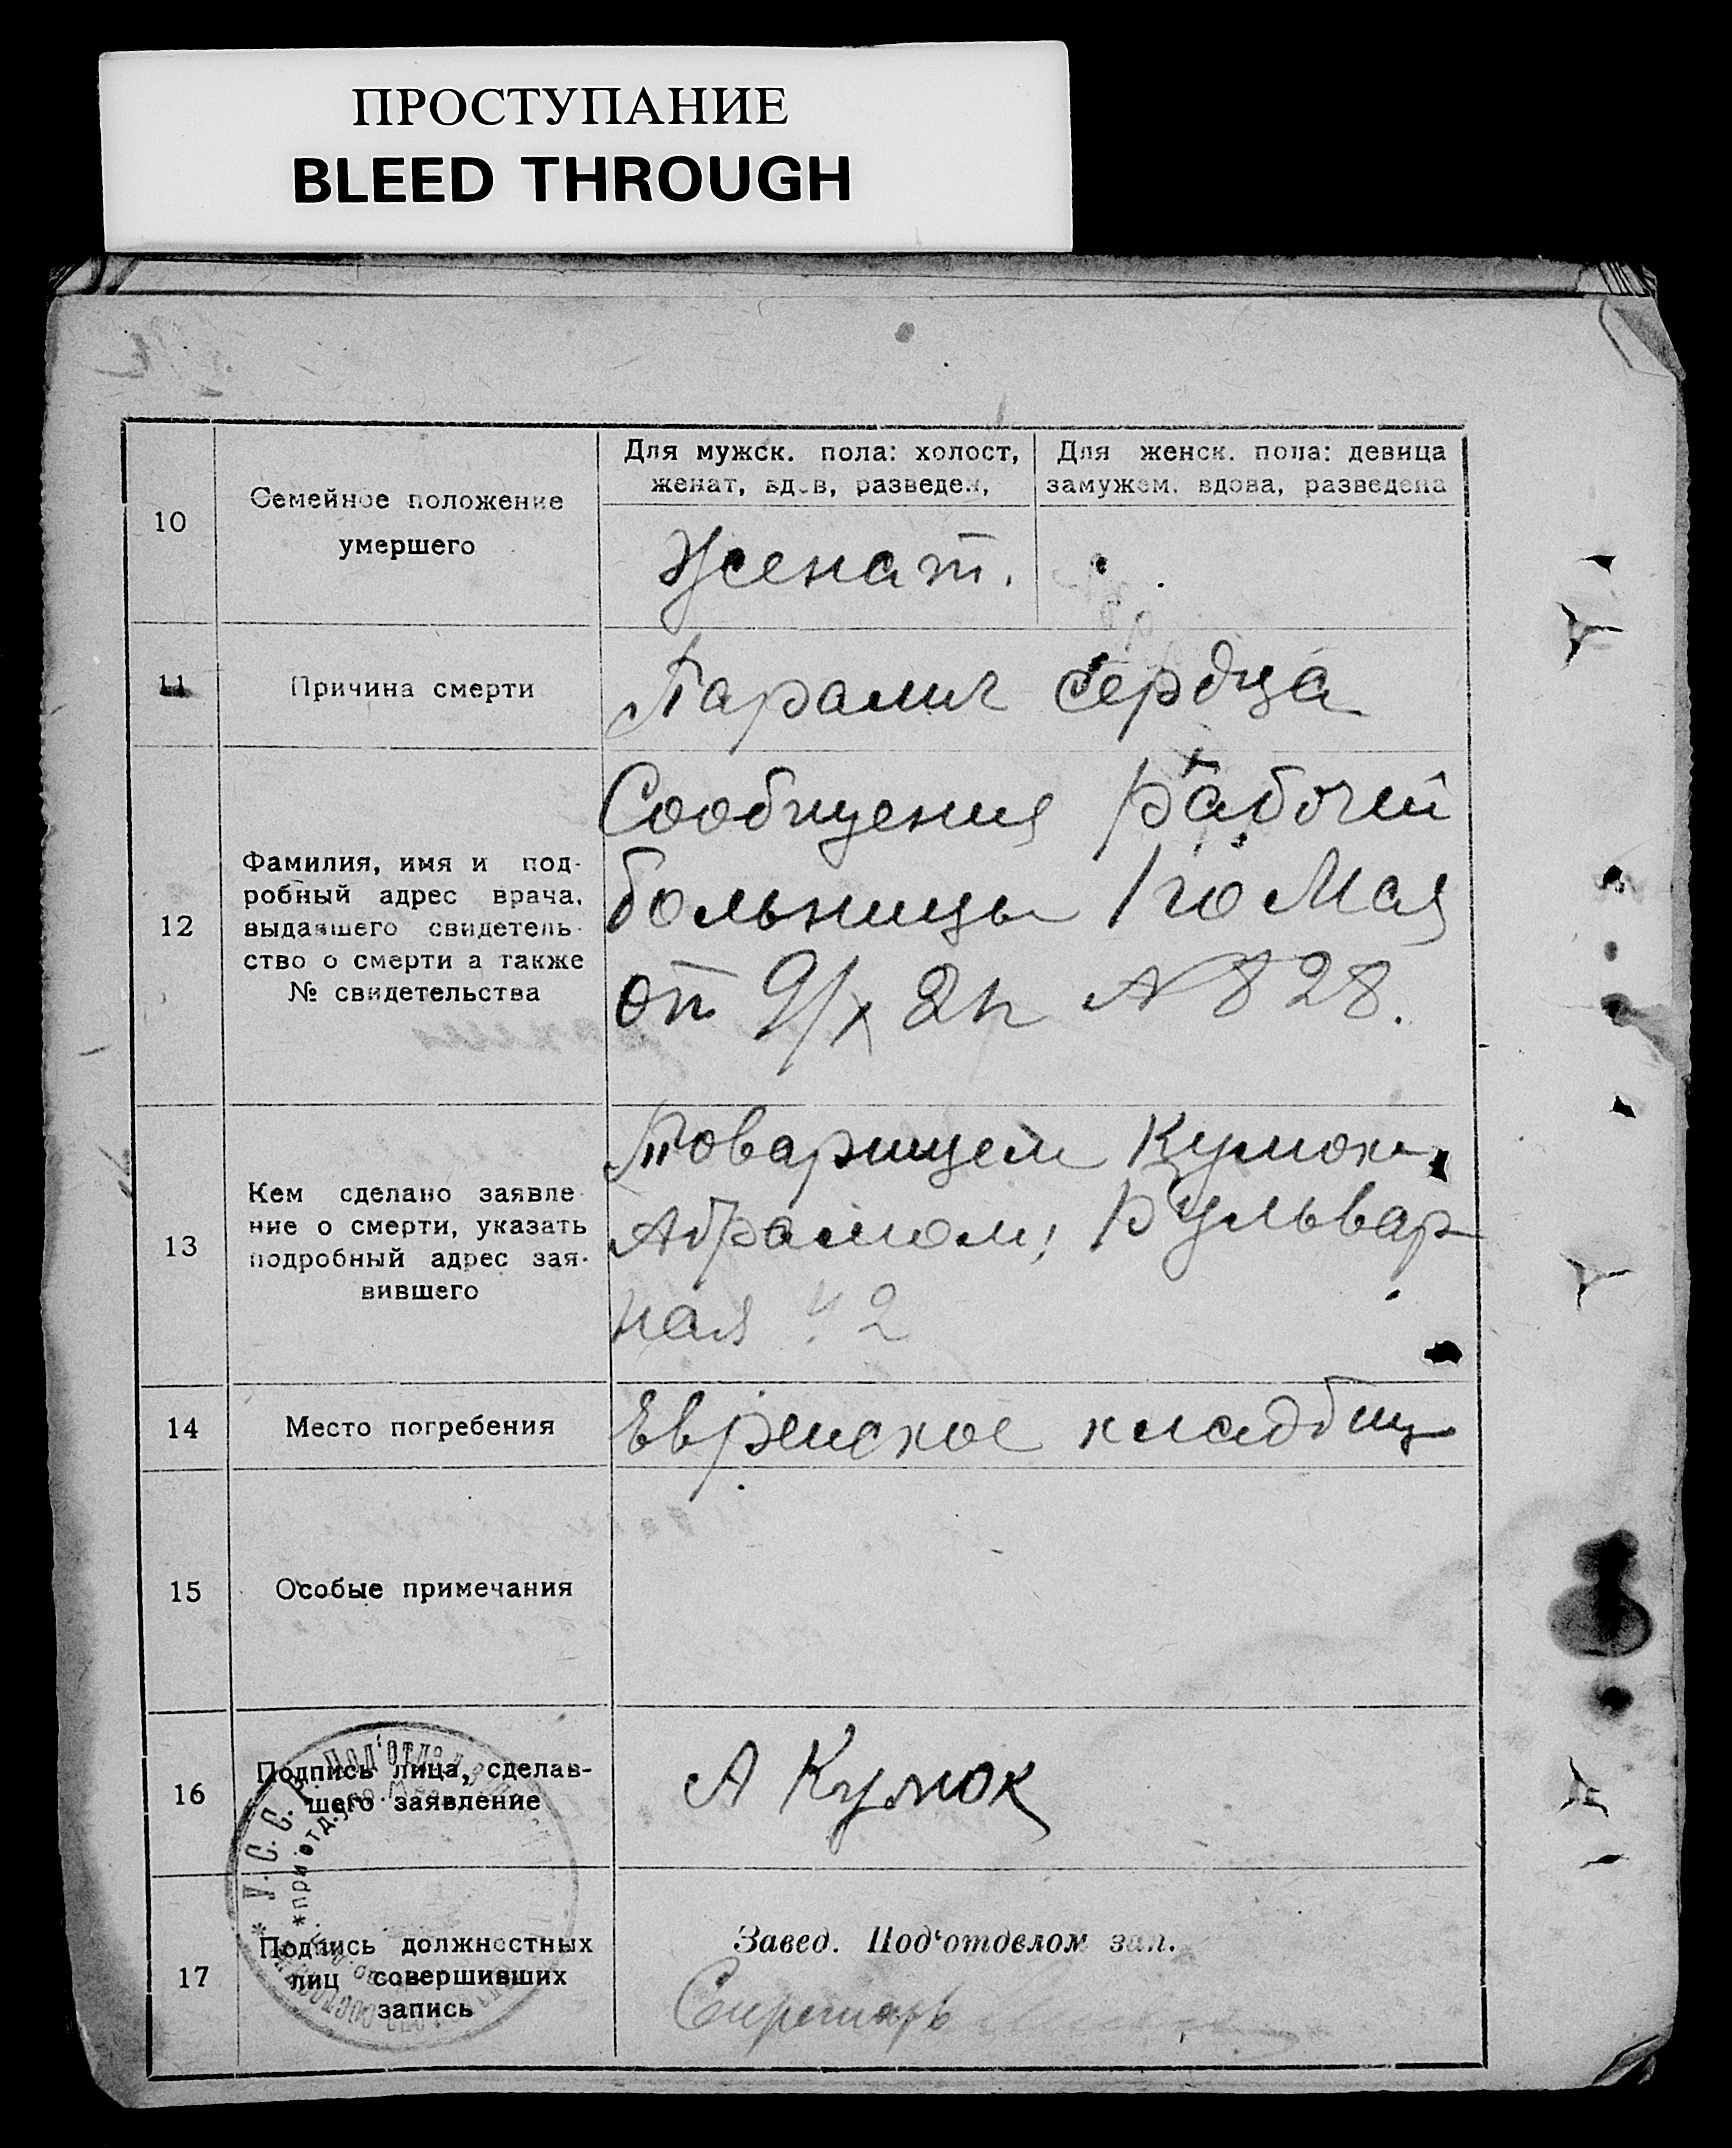 ПРОСТУПАНИЕ
BLEED THROUGH
10
Семейное положение
умершего
Для мужск. пола: холост,
женат, вдов, разведен,
Для женск. пола: девица
замужем, вдова, разведена
Женат.
11
Причина смерти
Паралич сердца
12
Фамилия, имя и под-
робный адрес врача,
выдавшего свидетель-
ство о смерти а также
№ свидетельства
Сообщения Рабочей
больницы 1го Мая
от 9/X 21г № 828.
13
Кем сделано заявле-
ние о смерти, указать
подробный адрес зая-
вившего
Товарищем Кумок
Абрамом, Бульвар
ная 2
14
Место погребения
Еврейское кладбищ
15
Особые примечания
16
Подпись лица, сделав-
шего заявление
А Кумок
17
Подпись должностных
лиц совершивших
запись
Завед. Под‘отделом зап.
Секретарь
У. С. С. Р. Под‘отдел